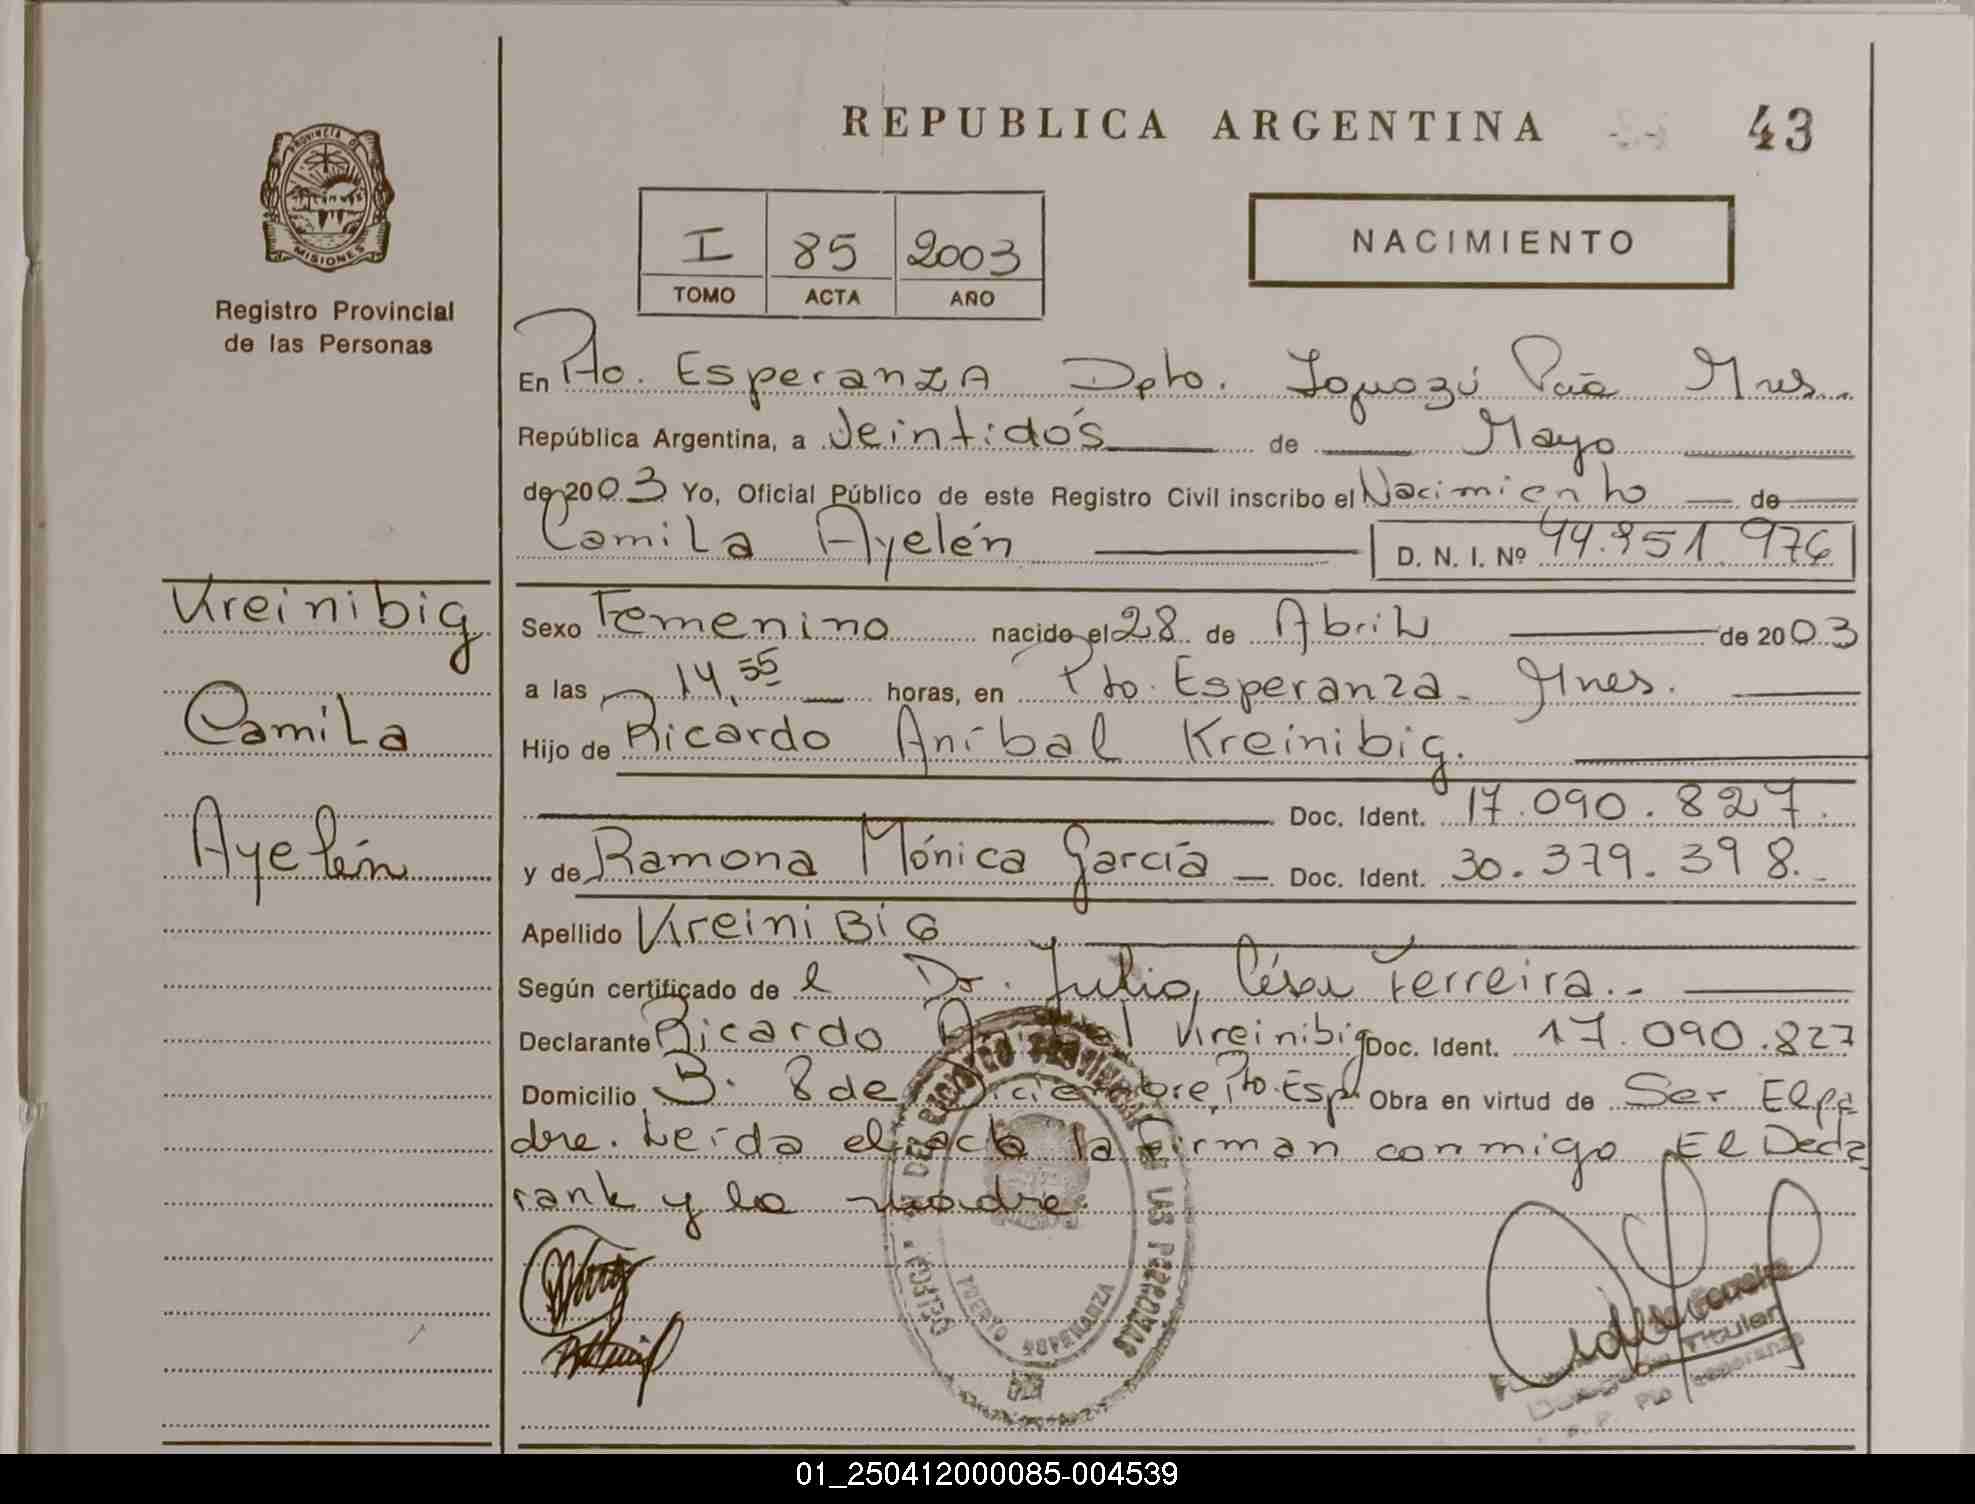 REPUBLICA ARGENTINA 43
PROVINCIA DE
MISIONES
Registro Provincial
de las Personas
I 85 2003
TOMO ACTA AÑO
NACIMIENTO
En Pto. Esperanza Dpto. Iguazú Pcia Mnes.
República Argentina, a Veintidós de Mayo
de 2003 Yo, Oficial Público de este Registro Civil inscribo el Nacimiento de
Camila Ayelén D. N. I. Nº 44.951.976
Kreinibig
Camila
Ayelén
Sexo Femenino nacido el 28 de Abril de 2003
a las 14,55 horas, en Pto. Esperanza - Mnes.
Hijo de Ricardo Aníbal Kreinibig.
Doc. Ident. 17.090.827.
y de Ramona Mónica García — Doc. Ident. 30.379.398.-
Apellido KreiniBiG
Según certificado de l Dr. Julio César Ferreira.-
Declarante Ricardo Aníbal Kreinibig Doc. Ident. 17.090.827
Domicilio B. 8 de Diciembre, Pto. Esp. Obra en virtud de Ser El pa
dre. Leída el acta la firman conmigo El Decla
rante y la madre.
REGISTRO PROVINCIAL DE LAS PERSONAS
PUERTO ESPERANZA
Ferreira
Titular
Pto Esperanza
01_250412000085-004539